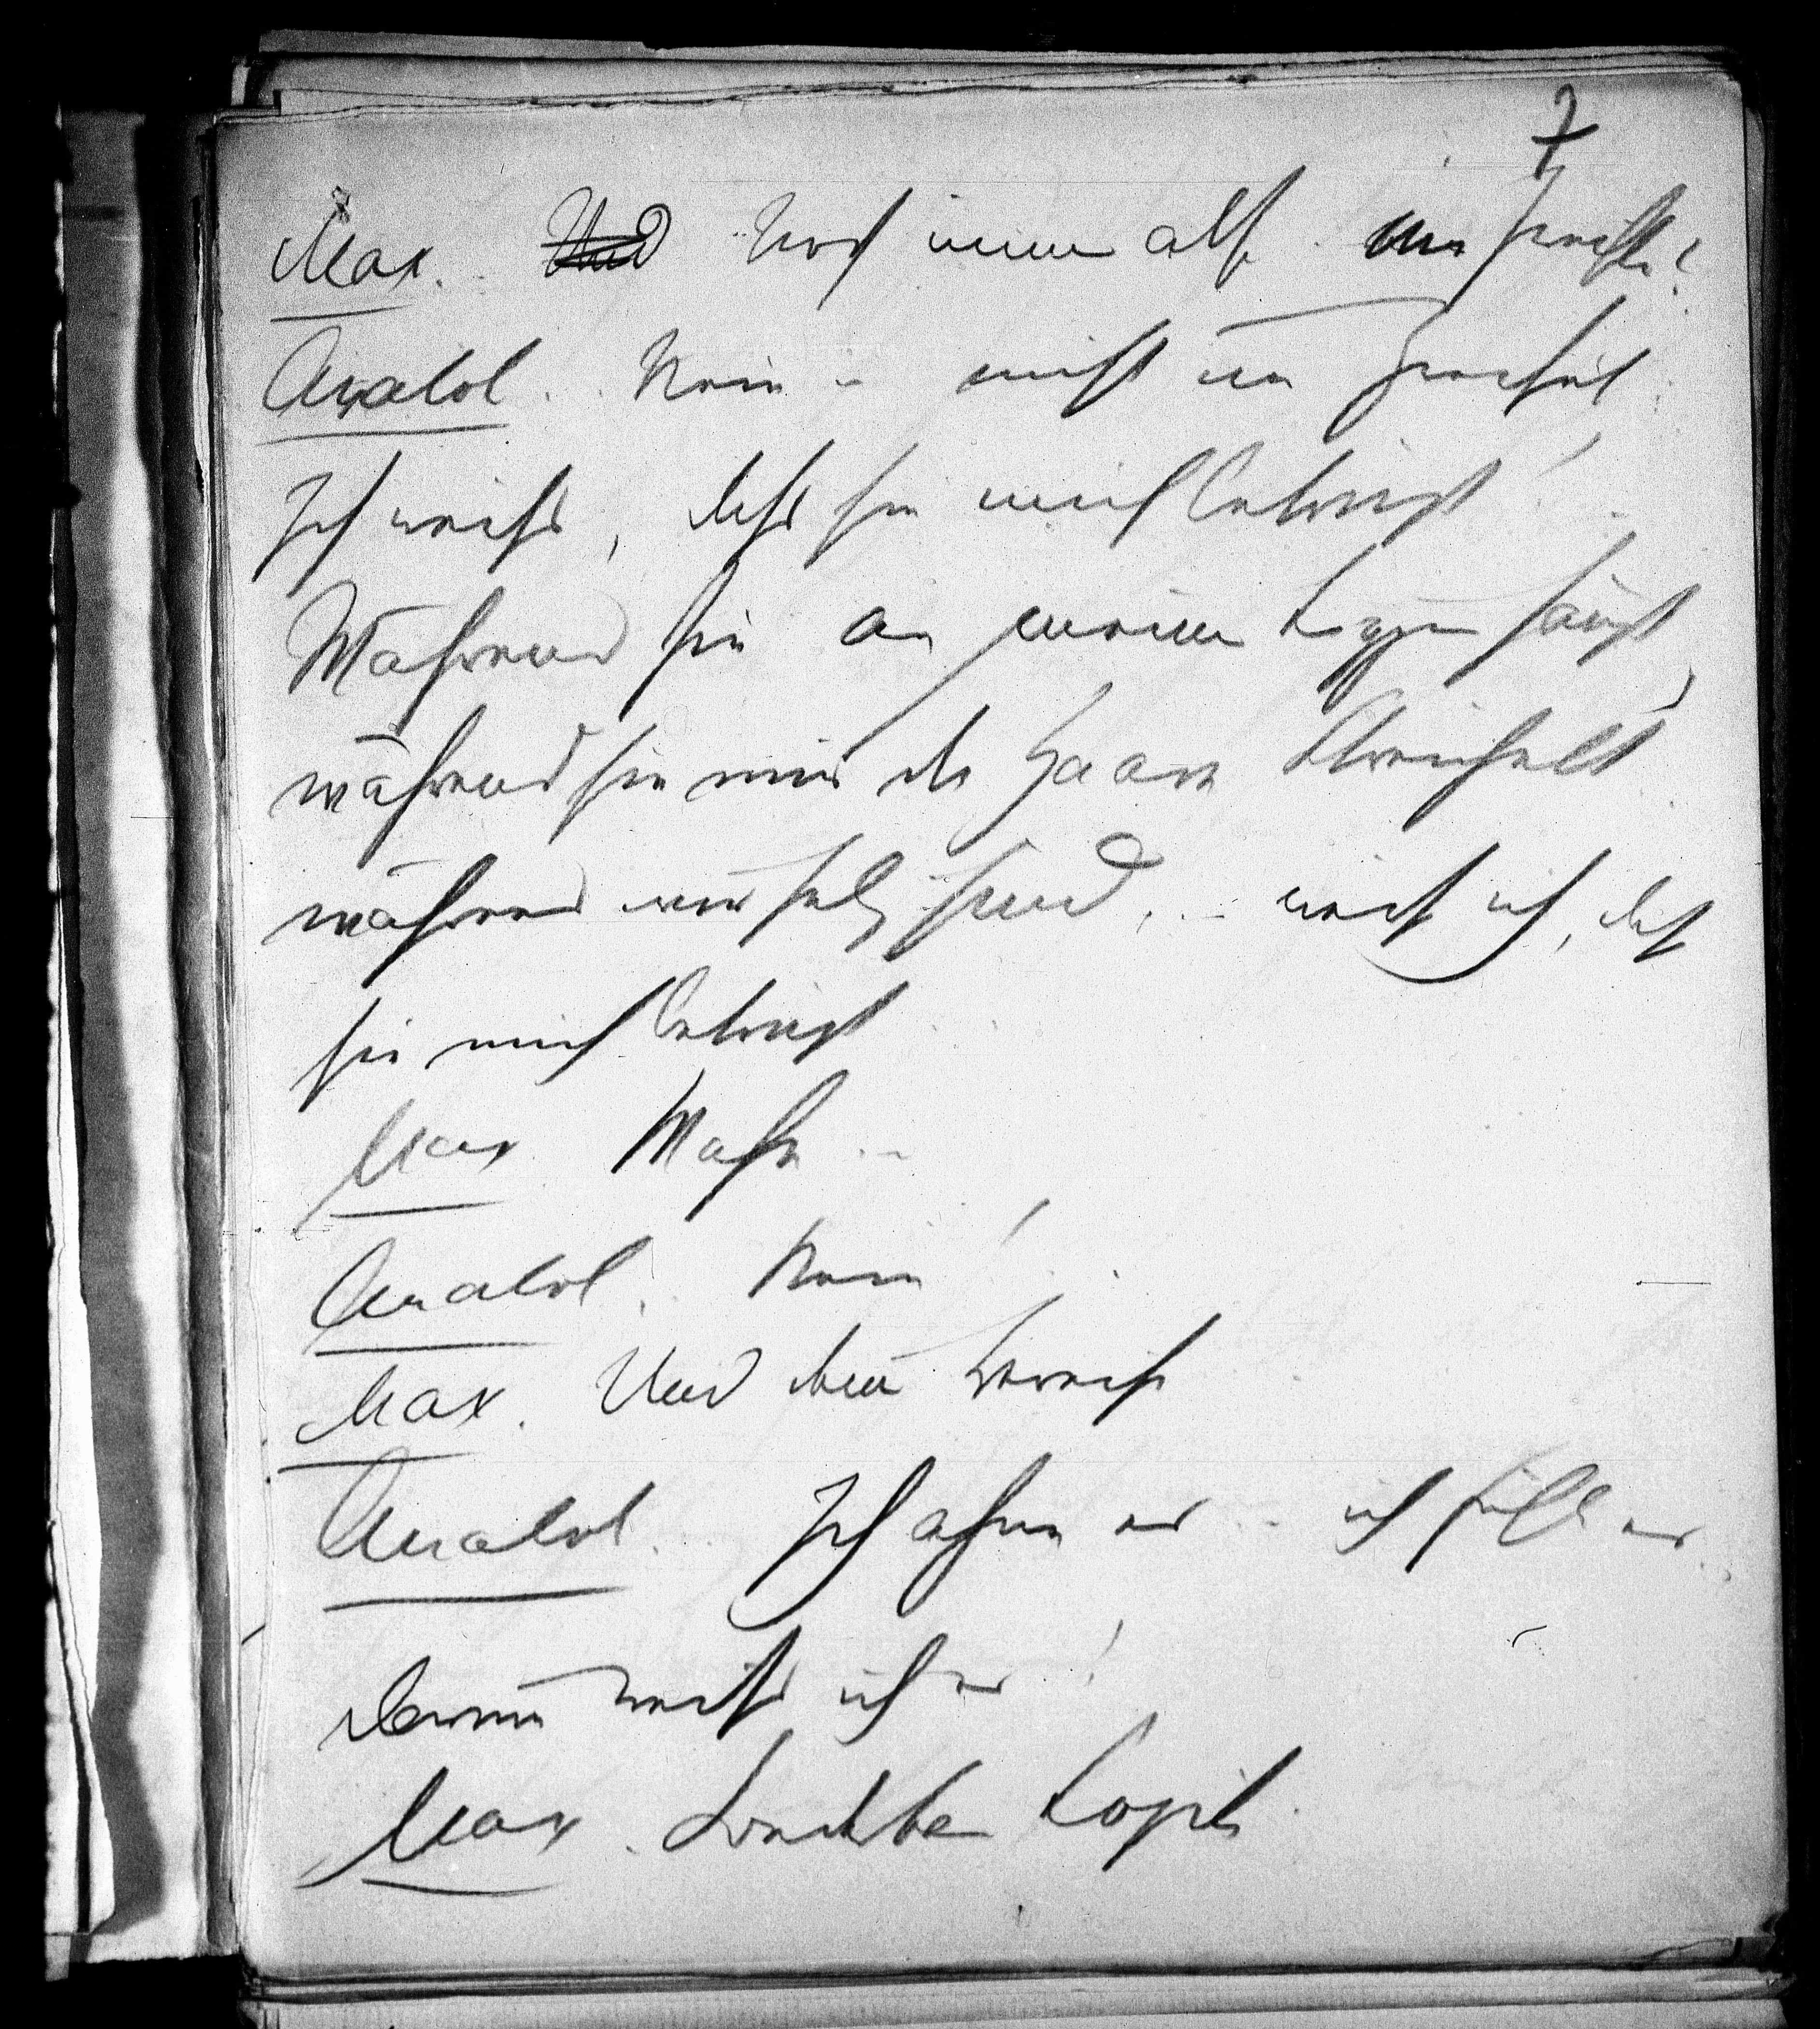 7
Max. Und Noch immer also im Zweifel?
Anatol. Nein – nicht im Zweifel.
Ich weiss, dass sie mich betrügt!
Während sie an meinen Lippen hängt,
während sie mir die Haare streichelt
während wir selig sind, – weiß ich, daß
sie mich betrügt
Max Wahn –
Anatol. Nein!
Max. Und deine Beweise
Anatol. Ich ahne es – ich fühle es
darum weiß ich es!
Max. Logik